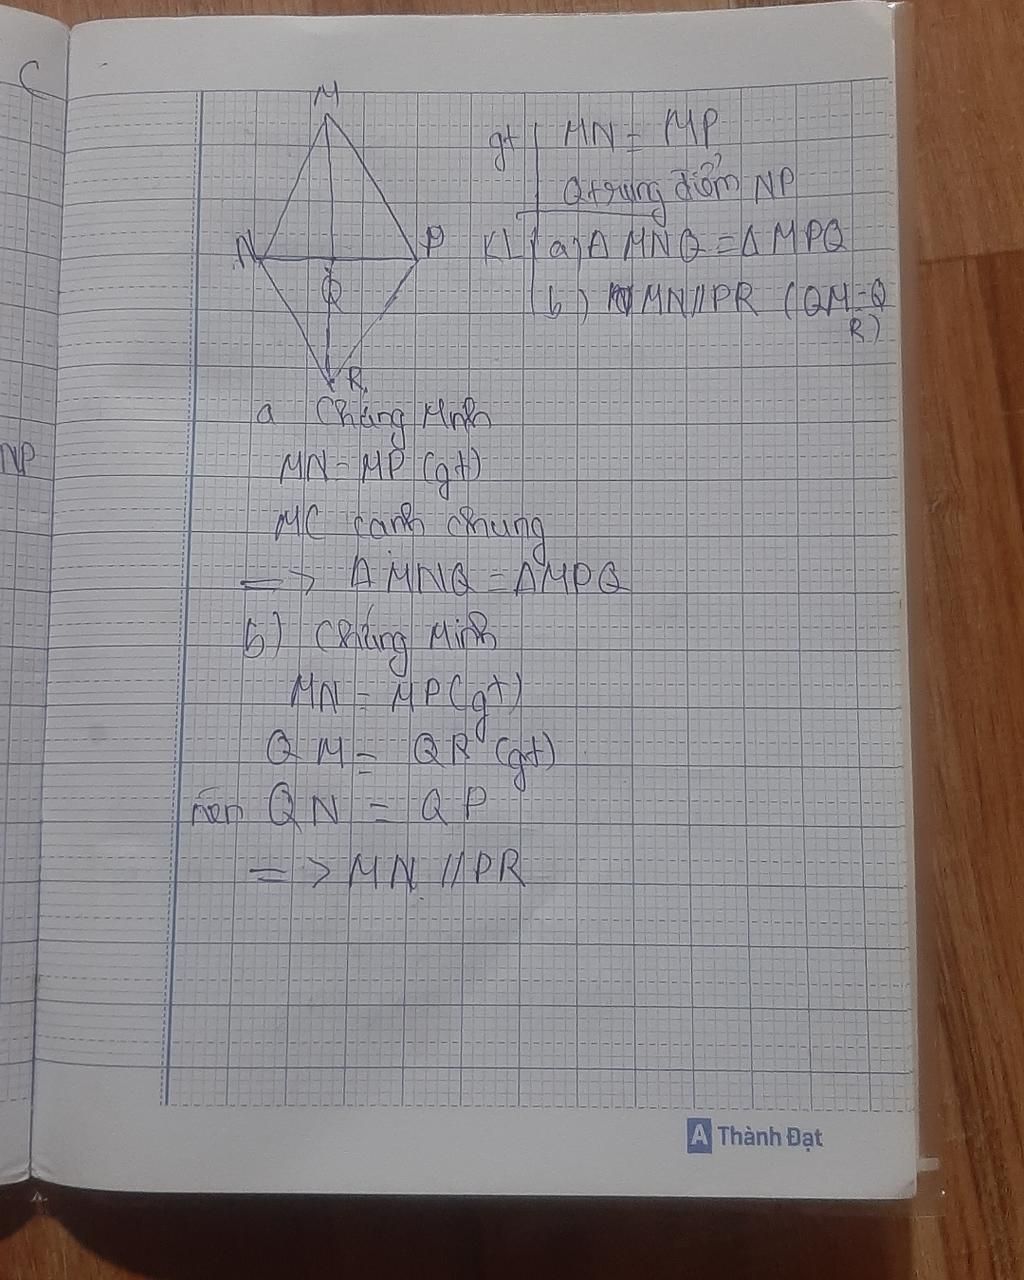 C
NP
M
N
P
Q
R
gt MN = MP
Q trung điểm NP
KL a) Δ MNQ = Δ MPQ
b) MN // PR (QM = Q
R)
a Chứng Minh
MN = MP (gt)
MC cạnh chung
=> Δ MNQ = Δ MPQ
b) Chứng Minh
MN = MP (gt)
QM = QR (gt)
nên QN = QP
=> MN // PR
A Thành Đạt